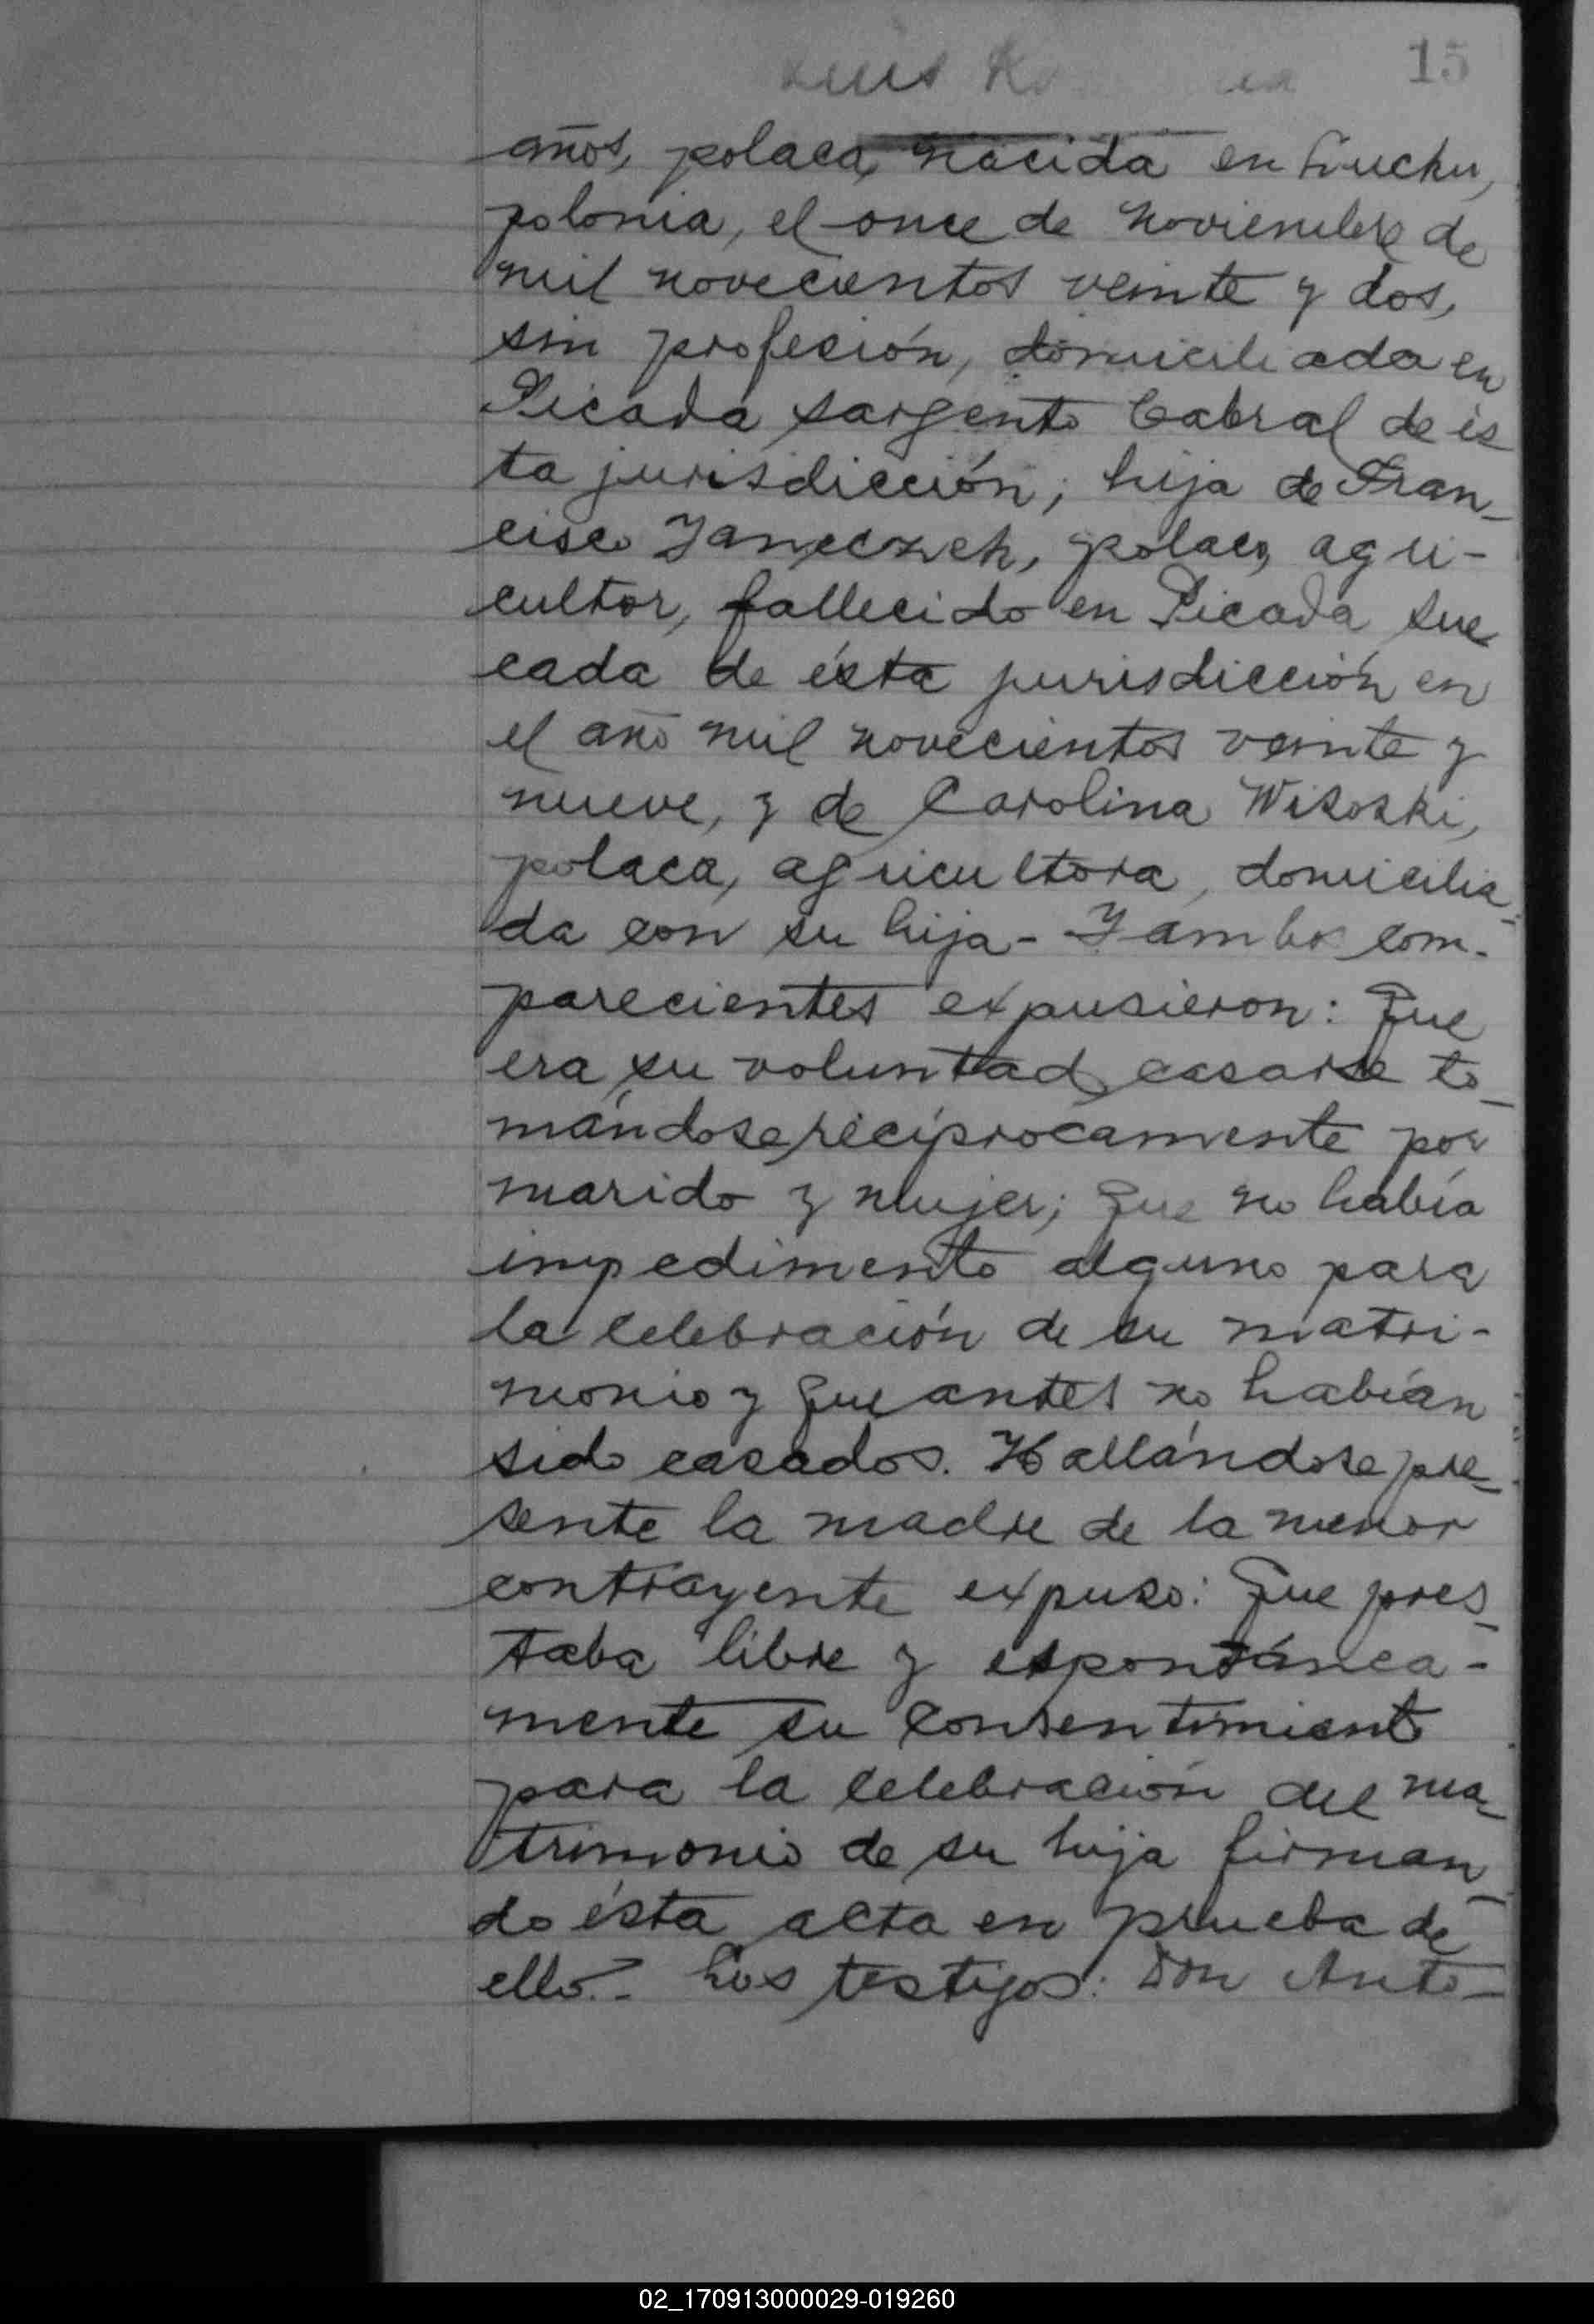 15
Luis
años, polaca, nacida en Lucku,
polonia, el once de noviembre de
mil novecientos veinte y dos,
sin profesión, domiciliada en
Picada Sargento Cabral de és
ta jurisdicción; hija de Fran_
cisco Janeczek, polaco, agri-
cultor, fallecido en Picada Sue
cada de ésta jurisdicción en
el año mil novecientos veinte y
nueve, y de Carolina Wisoski,
polaca, agricultora, domicilia_
da con su hija - Y ambos com-
parecientes expusieron: Que
era su voluntad casarse to_
mándose recíprocamente por
marido y mujer; que no había
impedimento alguno para
la celebración de su matri-
monio y que antes no habían
sido casados. Hallándose pre_
sente la madre de la menor
contrayente expuso: Que pres_
taba libre y espontánea-
mente su consentimiento
para la celebración del ma_
trimonio de su hija firman_
do ésta acta en prueba de
ello.- Los testigos: Don Anto_
02_170913000029-019260